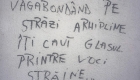 VAGABONDÂND PE
STRĂZI ARHIPLINE
ÎȚI CAUT GLASUL
PRINTRE VOCI
STRĂINE